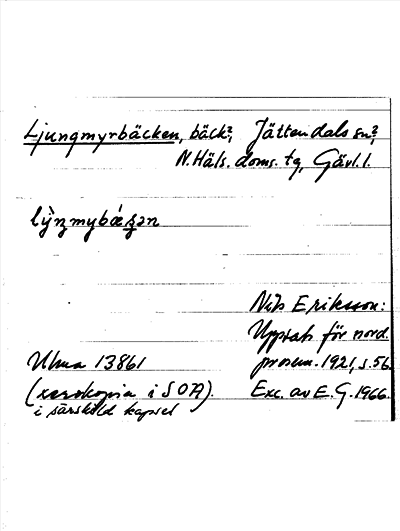 Ljungmyrbäcken, bäck?, Jättendals sn?,
N. Häls. doms. tg, Gävl. l.
lỳŋmybǽʂən
Nils Eriksson:
Uppsats för nord.
prosem. 1921, s. 56.
Ulma 13861
(xerokopia i SOA).
i särskild kapsel
Exc. av E. G. 1966.